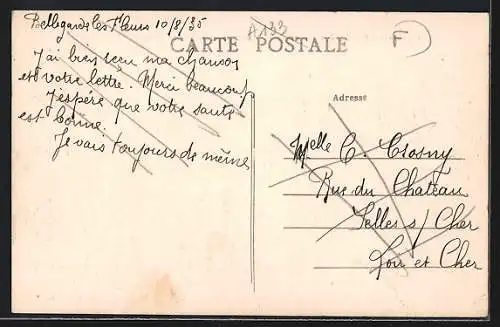 Bellegarde les Fleurs 10/8/35
A133
F
CARTE POSTALE
J'ai bien reçu ma chanson
et votre lettre. Merci beaucoup
J'espère que votre santé
est bonne.
Je vais toujours de même
Adresse
Melle C. Crosny
Rue du Chateau
Selles s/ Cher
Loir et Cher